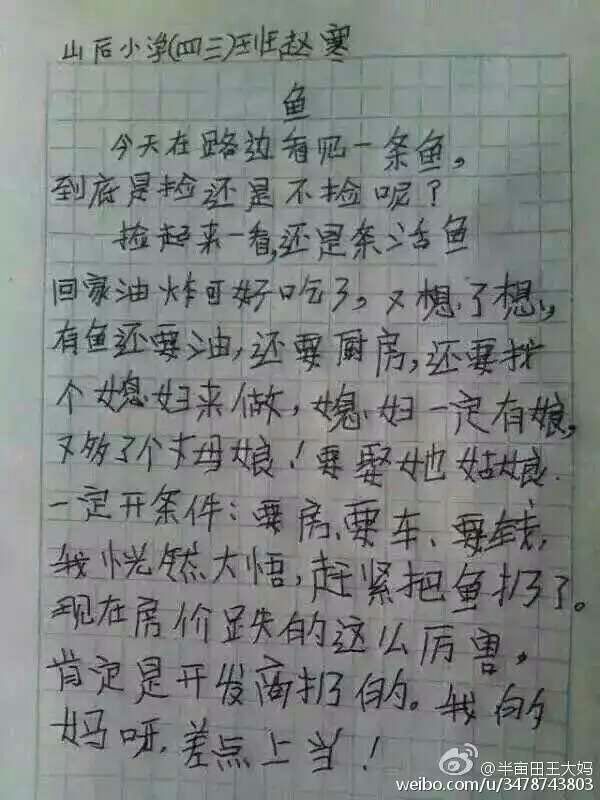 山后小学(四三)班赵寒
鱼
今天在路边看见一条鱼，
到底是捡还是不捡呢？
捡起来一看，还是条活鱼
回家油炸可好吃了，又想了想，
有鱼还要油，还要厨房，还要找
个媳妇来做，媳妇一定有娘，
又够了个丈母娘！要娶她姑娘
一定开条件：要房、要车、要钱，
我恍然大悟，赶紧把鱼扔了。
现在房价跌的这么厉害，
肯定是开发商扔的。我的
妈呀，差点上当！
@半亩田王大妈
weibo.com/u/3478743803